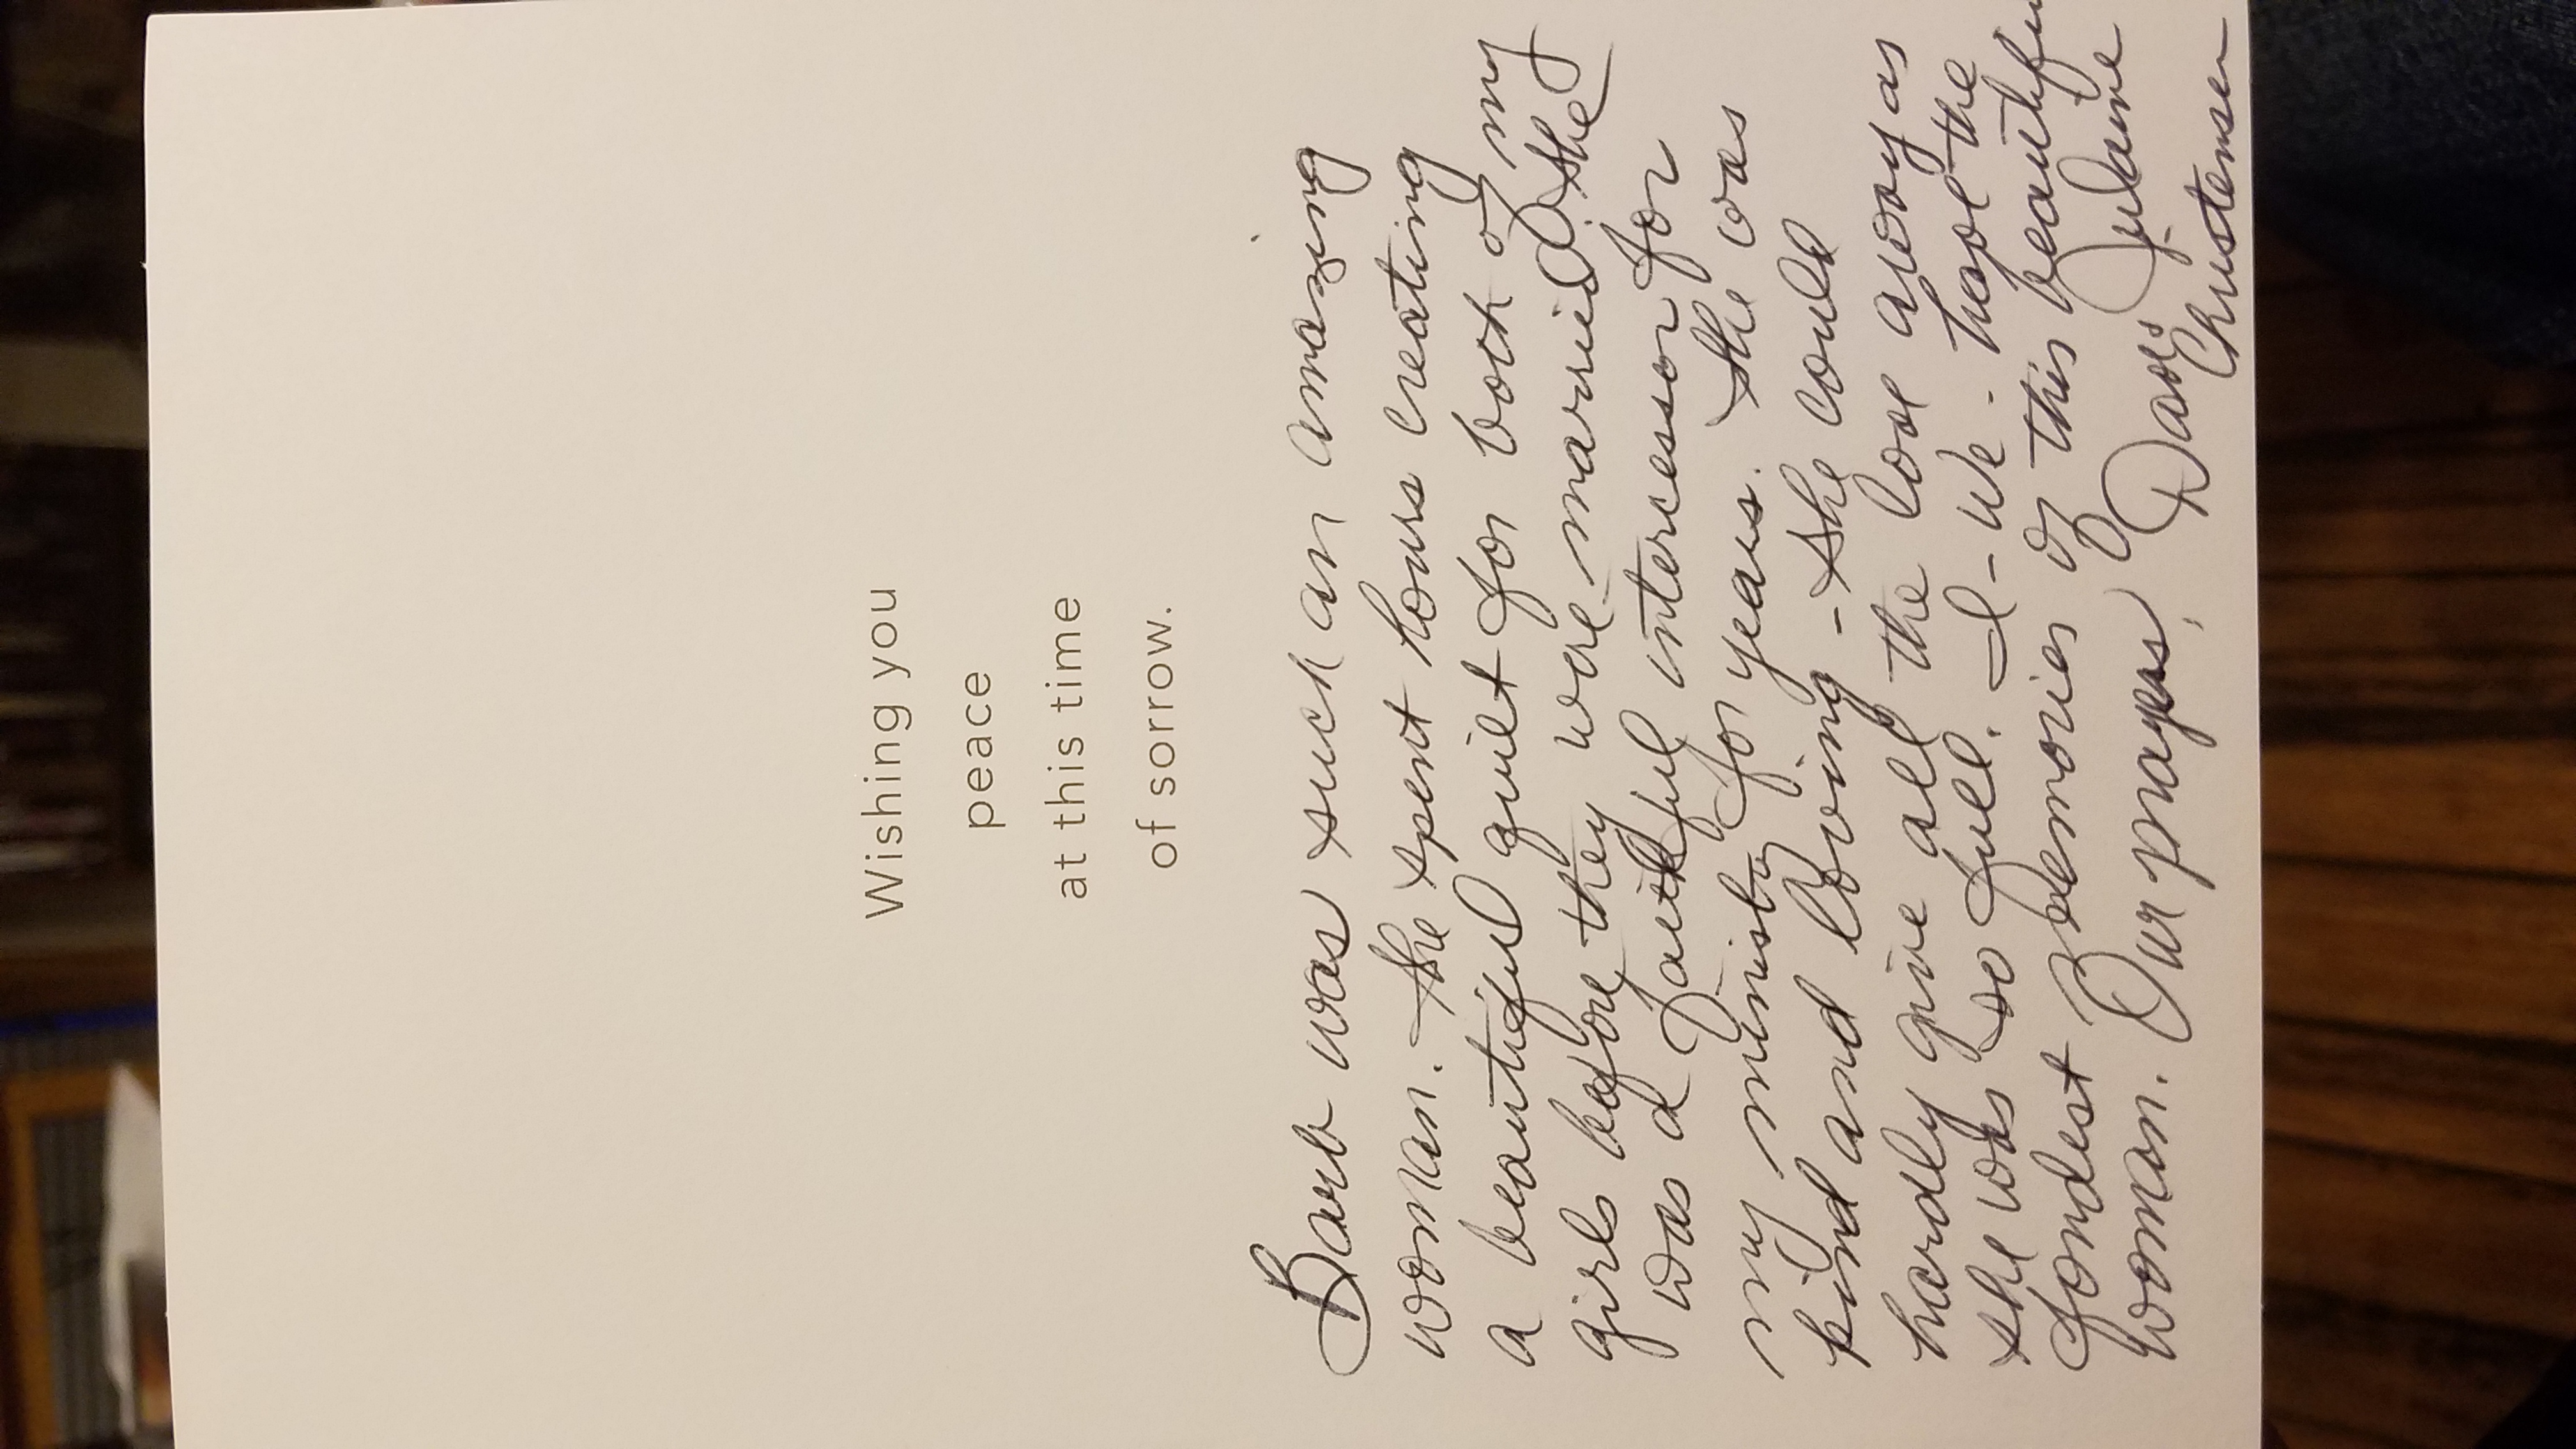 Wishing you
peace
at this time
of sorrow.
Barb was such an amazing
woman. She spent hours creating
a beautiful quilt for both of my
girls before they were married. She
was a faithful intercessor for
my ministry for years. She was
kind and loving - she could
hardly give all the love away as
she was so full. I - we - have the
fondest memories of this beautiful
woman. Our prayers, Dave & Julaine
Christensen